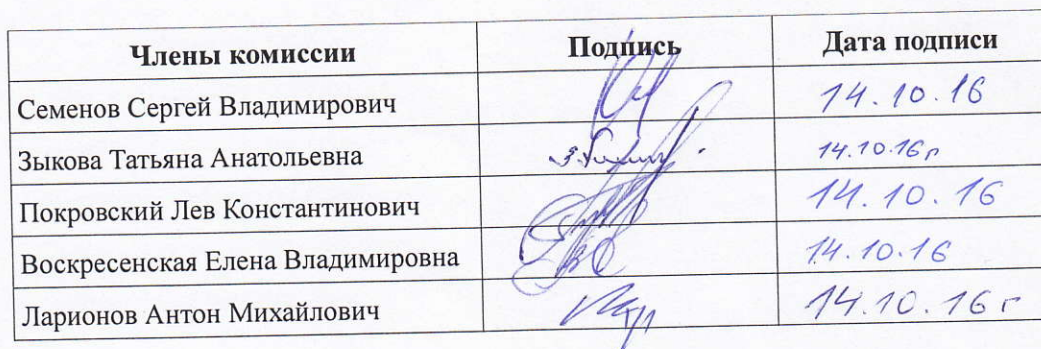 Члены комиссии Подпись Дата подписи
Семенов Сергей Владимирович 14.10.16
Зыкова Татьяна Анатольевна 14.10.16г
Покровский Лев Константинович 14.10.16
Воскресенская Елена Владимировна 14.10.16
Ларионов Антон Михайлович 14.10.16г